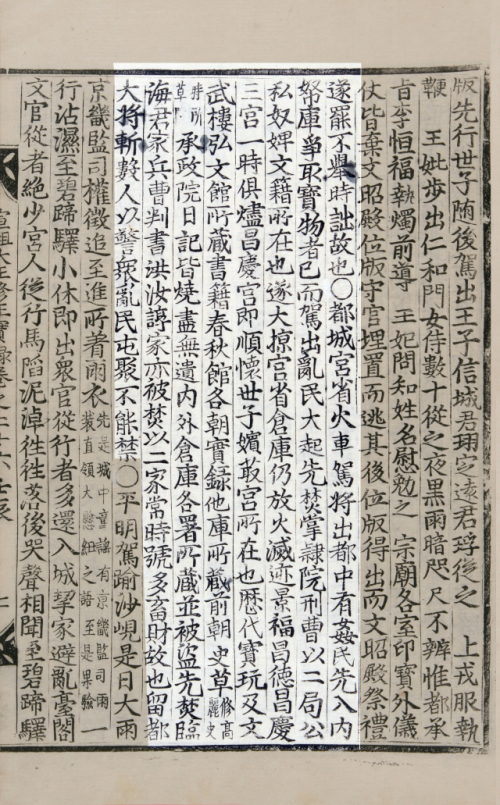 版先行世子隨後駕出王子信城君珝定遠君琈從之 上戎服執
鞭 王妣步出仁和門女侍數十從之夜黑雨暗咫尺不辨惟都承
旨李恒福執燭前導 王妃問知姓名慰勉之 宗廟各室印寶外儀
仗皆棄文昭殿位版守官埋置而逃其後位版得出而文昭殿祭禮
遂罷不擧時詘故也○都城宮省火車駕將出都中有姦民先入內
帑庫爭取寶物者已而駕出亂民大起先焚掌隷院刑曹以二局公
私奴婢文籍所在也遂大掠宮省倉庫仍放火滅迹景福昌德昌慶
三宮一時俱燼昌慶宮即順懷世子嬪敢宮所在也歷代寶玩及文
武樓弘文館所藏書籍春秋館各朝實錄他庫所藏前朝史草修高麗史
時所草承政院日記皆燒盡無遺內外倉庫各署所藏並被盜先焚臨
海君家兵曹判書洪汝諄家亦被焚以二家常時號多畜財故也留都
大將斬數人以警衆亂民屯聚不能禁○平明駕踰沙峴是日大雨
京畿監司權徵追至進所着雨衣先是城中童謠有京畿監司雨裝直領大慰細之語至是果驗一
行沾濕至碧蹄驛小休即出衆官從行者多還入城挈家避亂臺閣
文官從者絶少宮人從行馬陷泥淖往往落後哭聲相聞至碧蹄驛
宣祖大王修正實錄卷之二十六壬辰